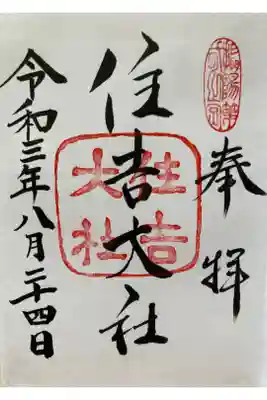 奉拝
住吉大社
住吉
大社
令和三年八月二十四日